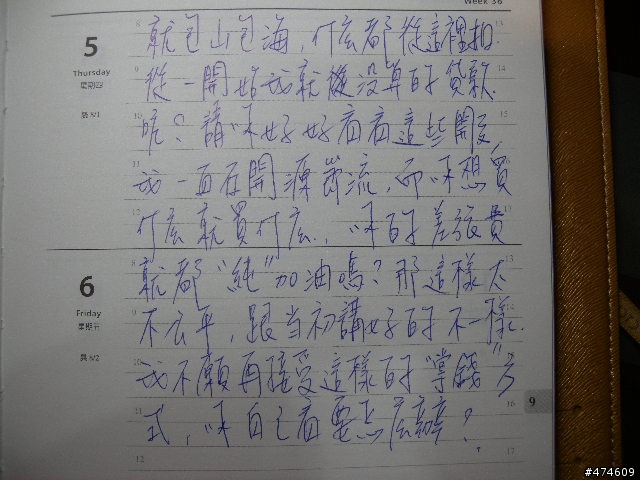 Week 36
5
Thursday
星期四
農 8/1
就包山包海,什麼都從這裡扣.
從一開始我就從沒算的貸款
呢?請你好好看看這些開支,
我一直在開源節流,而你想買
什麼就買什麼.,你的差旅費
6
Friday
星期五
農 8/2
就都"純"加油嗎?那這樣太
不公平,跟當初講好的不一樣.
我不願再接受這樣的"拿錢"方
式,你自己看要怎麼辦?
8
9
10
11
12
13
14
15
16
17
9
#474609